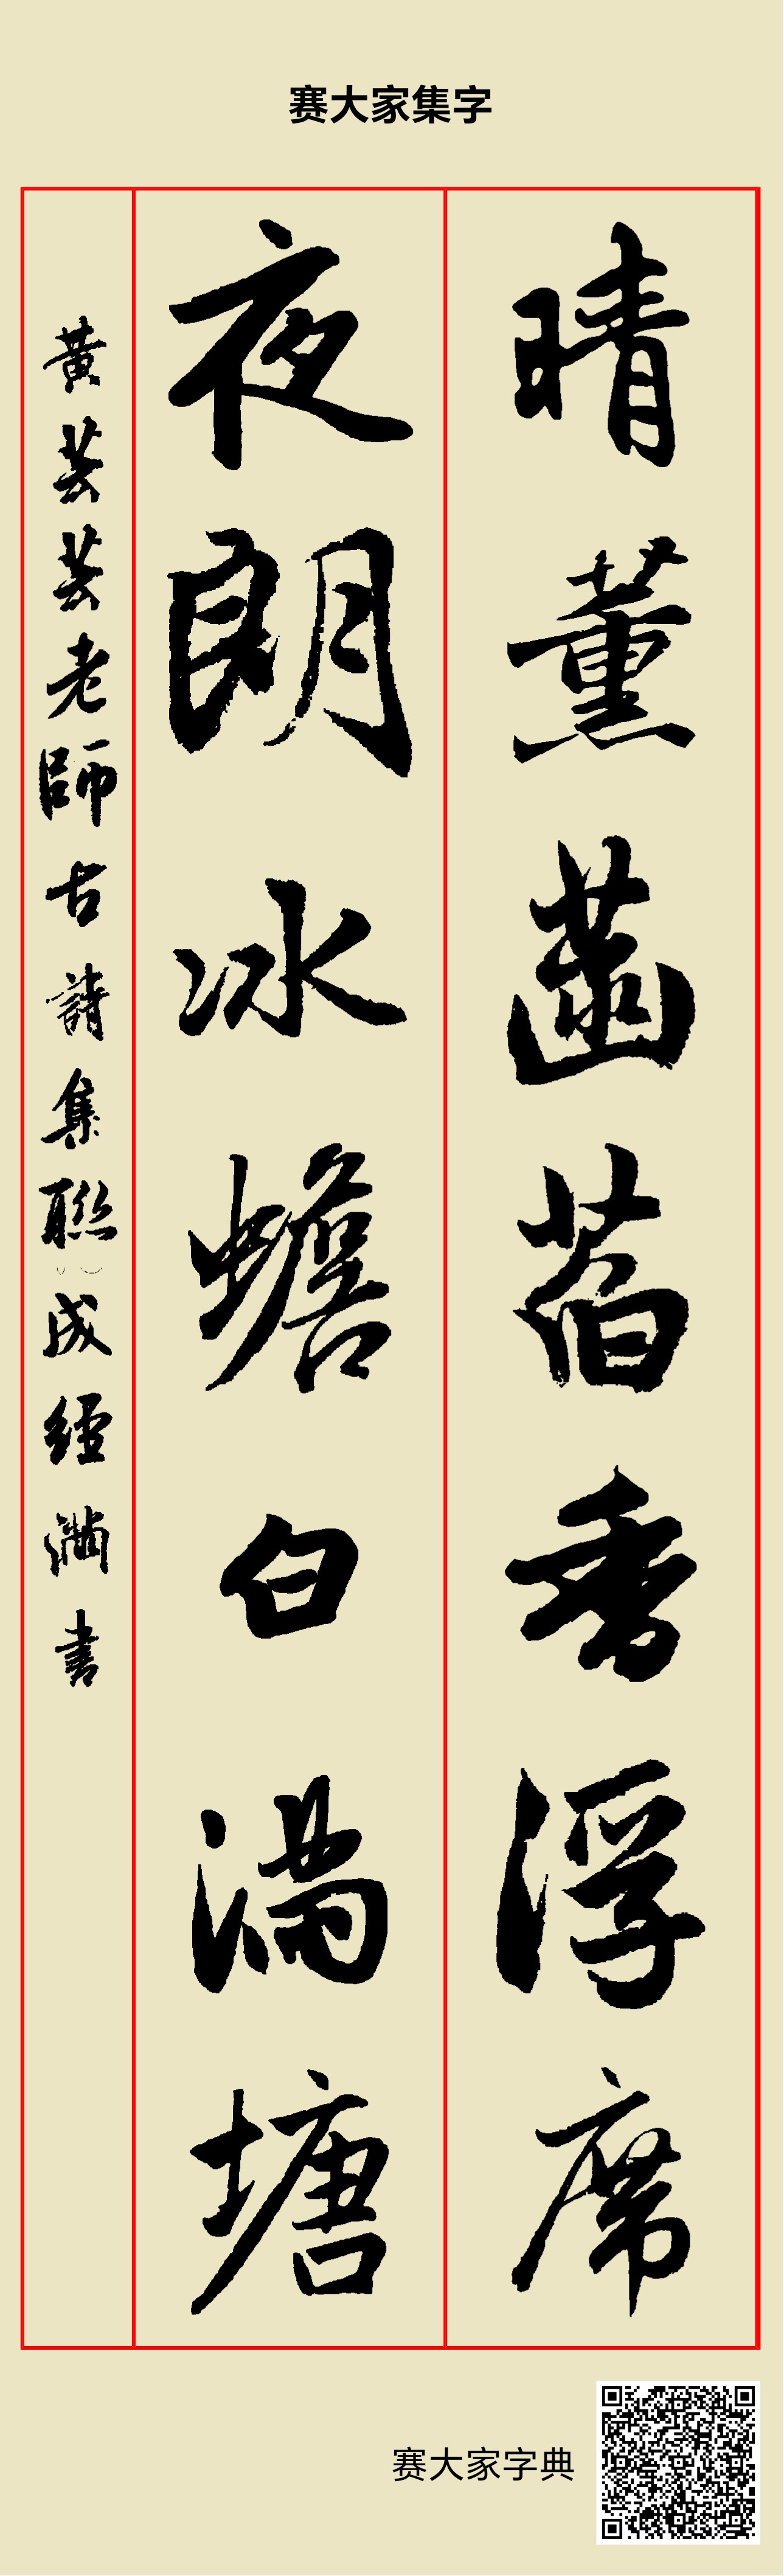 赛大家集字
晴薰菡萏香浮席
夜朗冰蟾白满塘
黄芸芸老師古詩集聯
成經滿書
赛大家字典